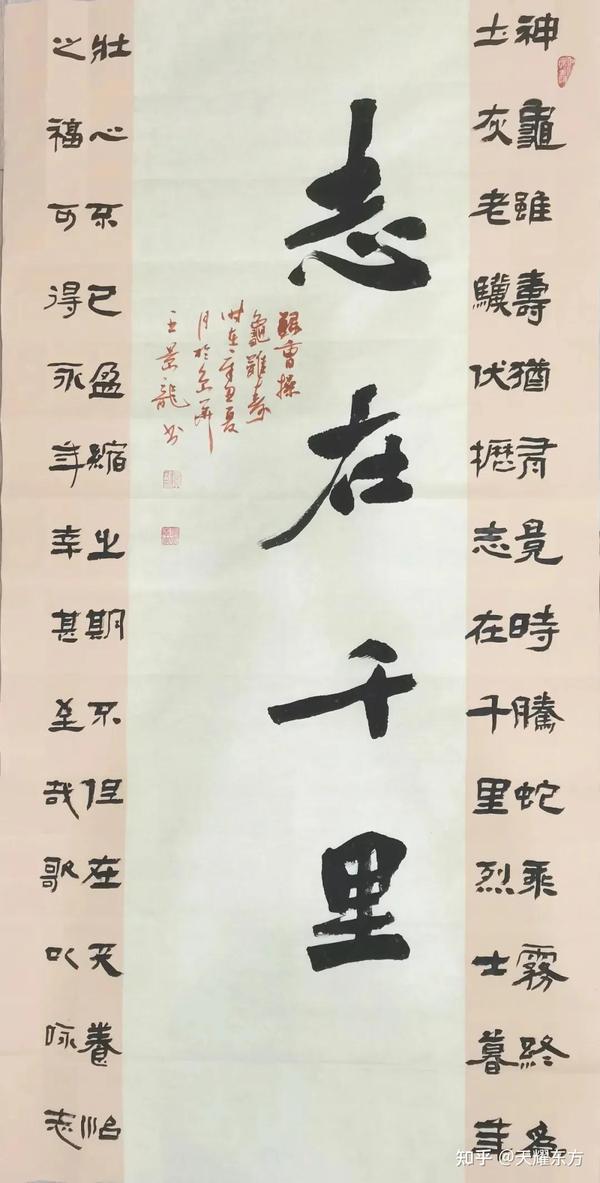 神龜雖壽猶有竟時騰蛇乘霧終為
土灰老驥伏櫪志在千里烈士暮年
志在千里
録曹操
龜雖壽
时在辛丑夏
月於
王景龍书
壯心不已盈縮之期不但在天養怡
之福可得永年幸甚至哉歌以咏志
知乎 @天耀东方